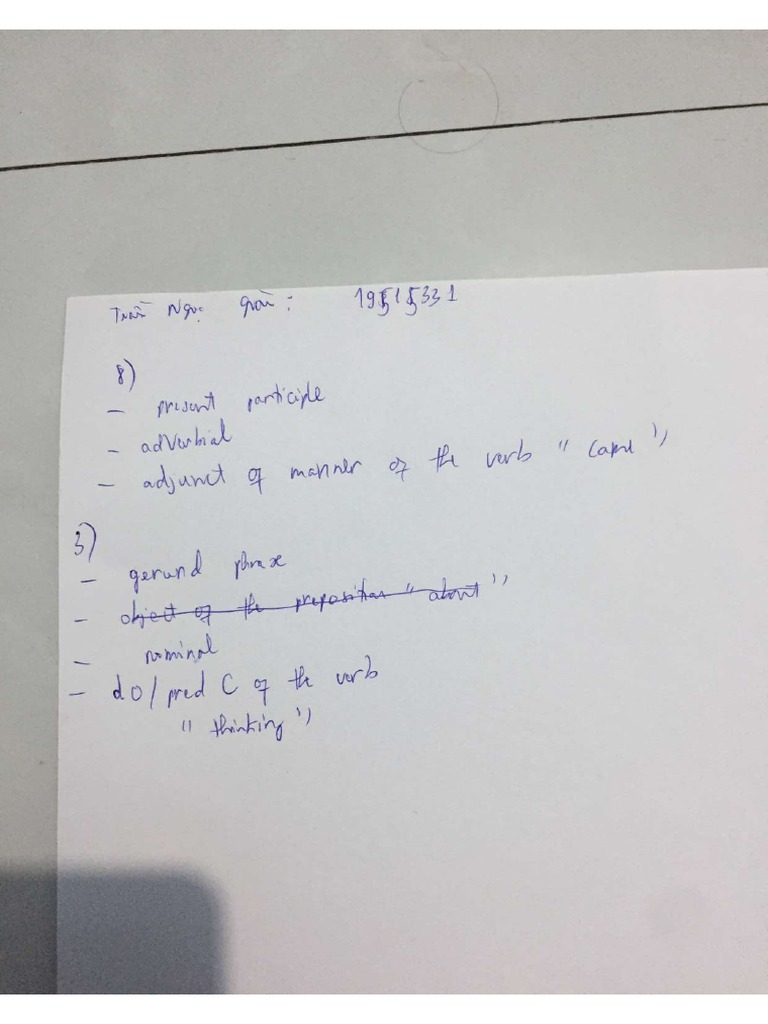 Trần Ngọc : 19515331
8)
- present participle
- adverbial
- adjunct of manner of the verb " came "
3)
- gerund phrase
- object of the preposition " about "
- nominal
- dO/pred C of the verb
" thinking "